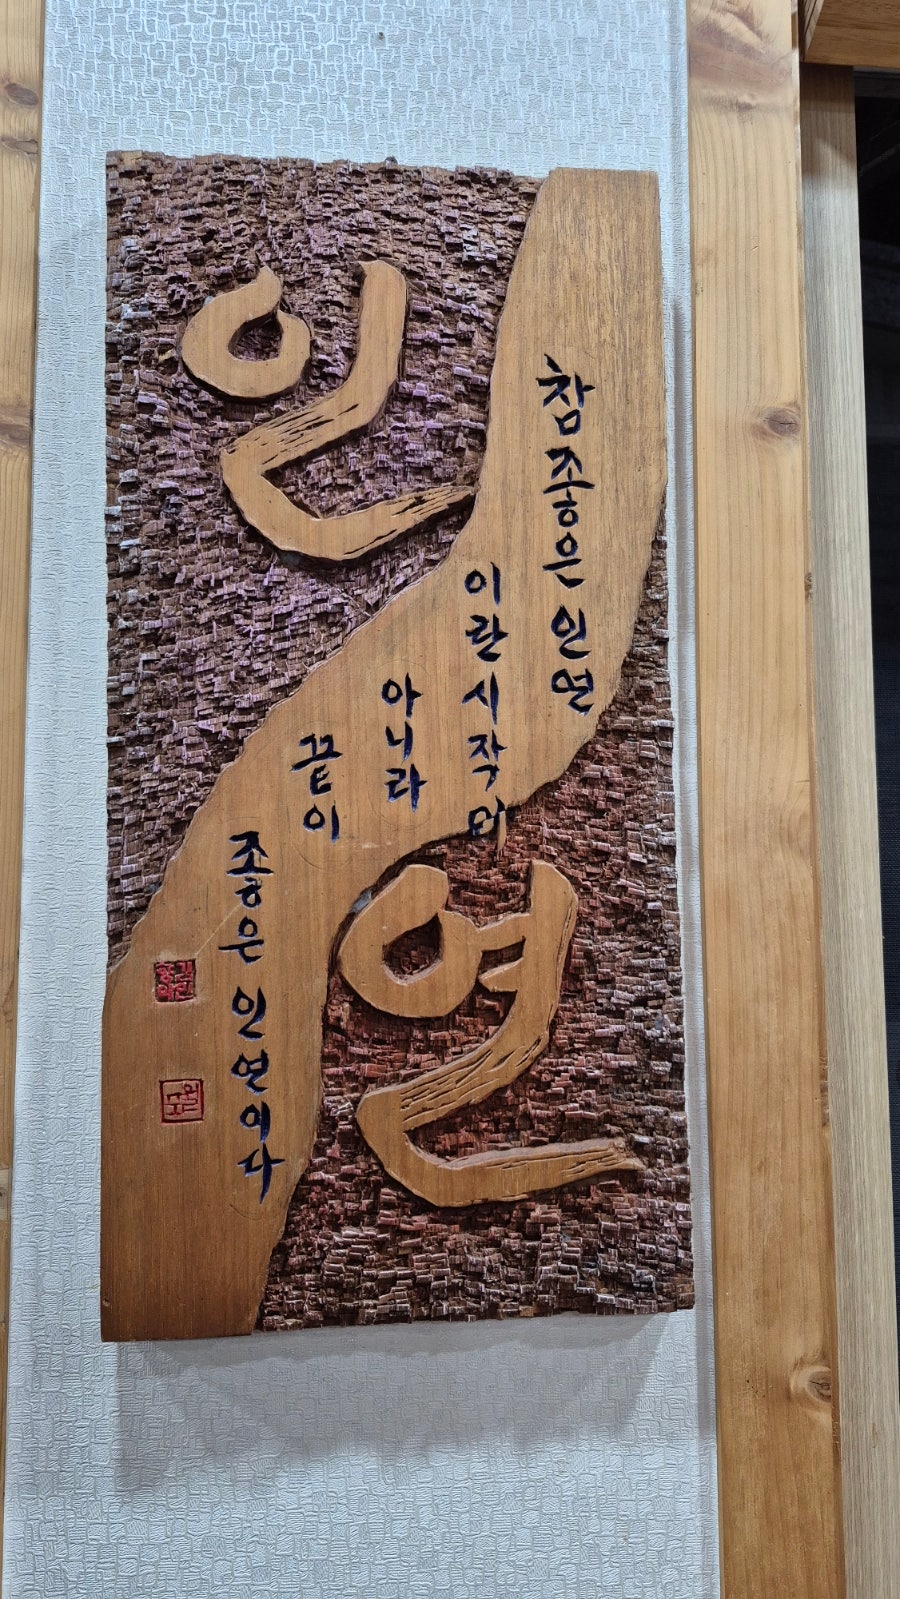 인연
참좋은 인연
이란시작이
아니라
끝이
좋은 인연이다